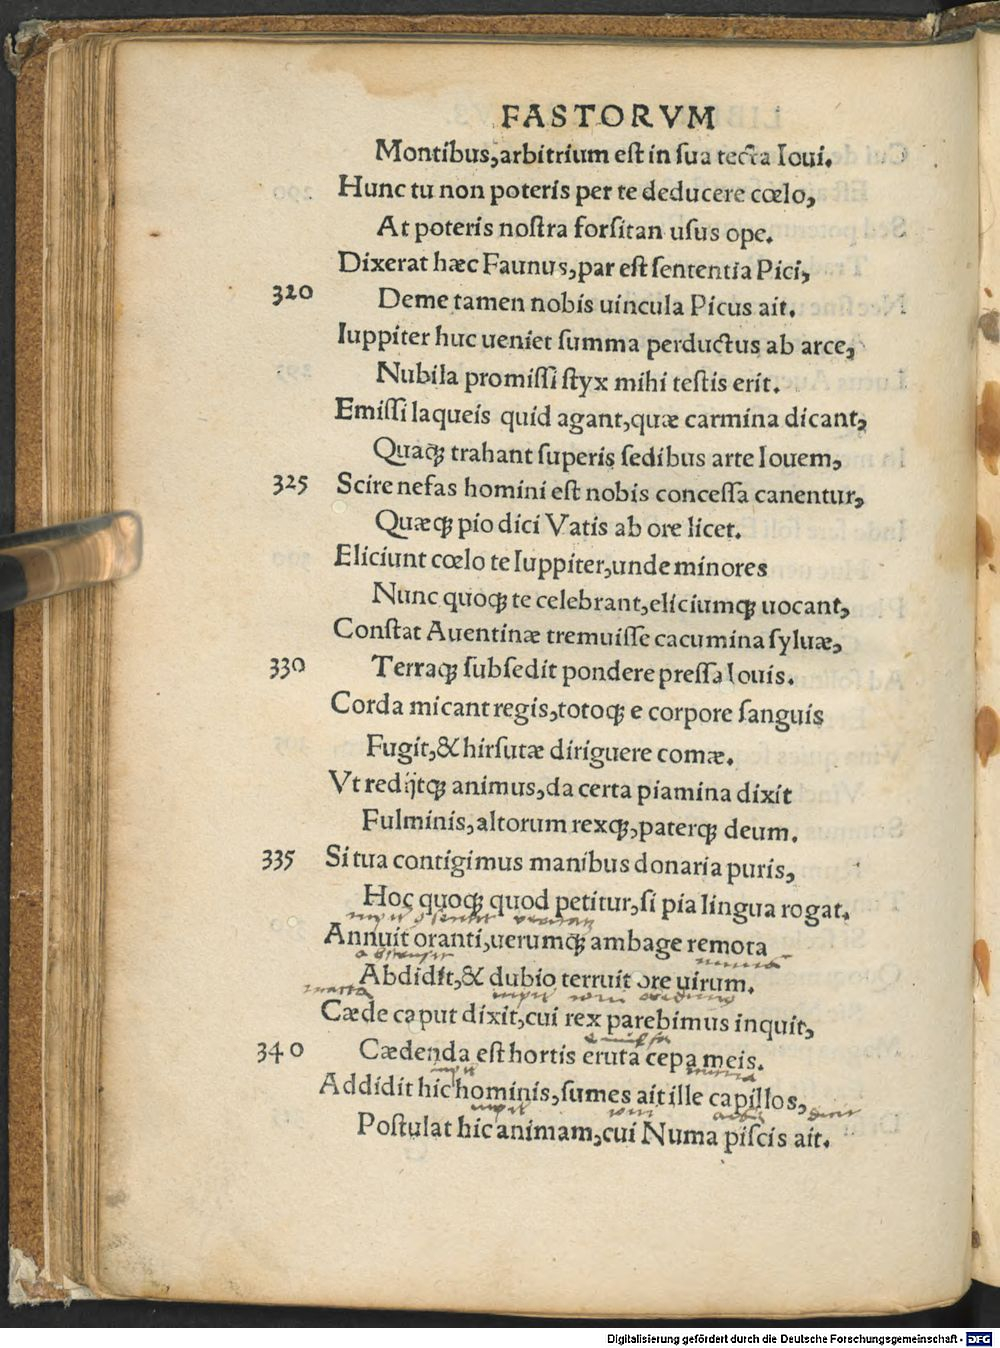 FASTORVM
Montibus,arbitrium est in sua tecta Ioui.
Hunc tu non poteris per te deducere cœlo,
At poteris nostra forsitan usus ope.
Dixerat hæc Faunus,par est sententia Pici,
320 Deme tamen nobis uincula Picus ait.
Iuppiter huc ueniet summa perductus ab arce,
Nubila promissi styx mihi testis erit.
Emissi laqueis quid agant,quæ carmina dicant,
Quaqꝫ trahant superis sedibus arte Iouem,
325 Scire nefas homini est nobis concessa canentur,
Quæqꝫ pio dici Vatis ab ore licet.
Eliciunt cœlo te Iuppiter,unde minores
Nunc quoqꝫ te celebrant,eliciumqꝫ uocant,
Constat Auentinæ tremuisse cacumina syluæ,
330 Terraqꝫ subsedit pondere pressa Iouis.
Corda micant regis,totoqꝫ e corpore sanguis
Fugit,& hirsutæ diriguere comæ.
Vt redijtqꝫ animus,da certa piamina dixit
Fulminis,altorum rexqꝫ,paterqꝫ deum.
335 Si tua contigimus manibus donaria puris,
Hoc quoqꝫ quod petitur,si pia lingua rogat.
Annuit oranti,uerumqꝫ ambage remota
Abdidit,& dubio terruit ore uirum.
Cæde caput dixit,cui rex parebimus inquit,
340 Cædenda est hortis eruta cepa meis.
Addidit hic hominis,sumes ait ille capillos,
Postulat hic animam,cui Numa piscis ait.
Digitalisierung gefördert durch die Deutsche Forschungsgemeinschaft - DFG